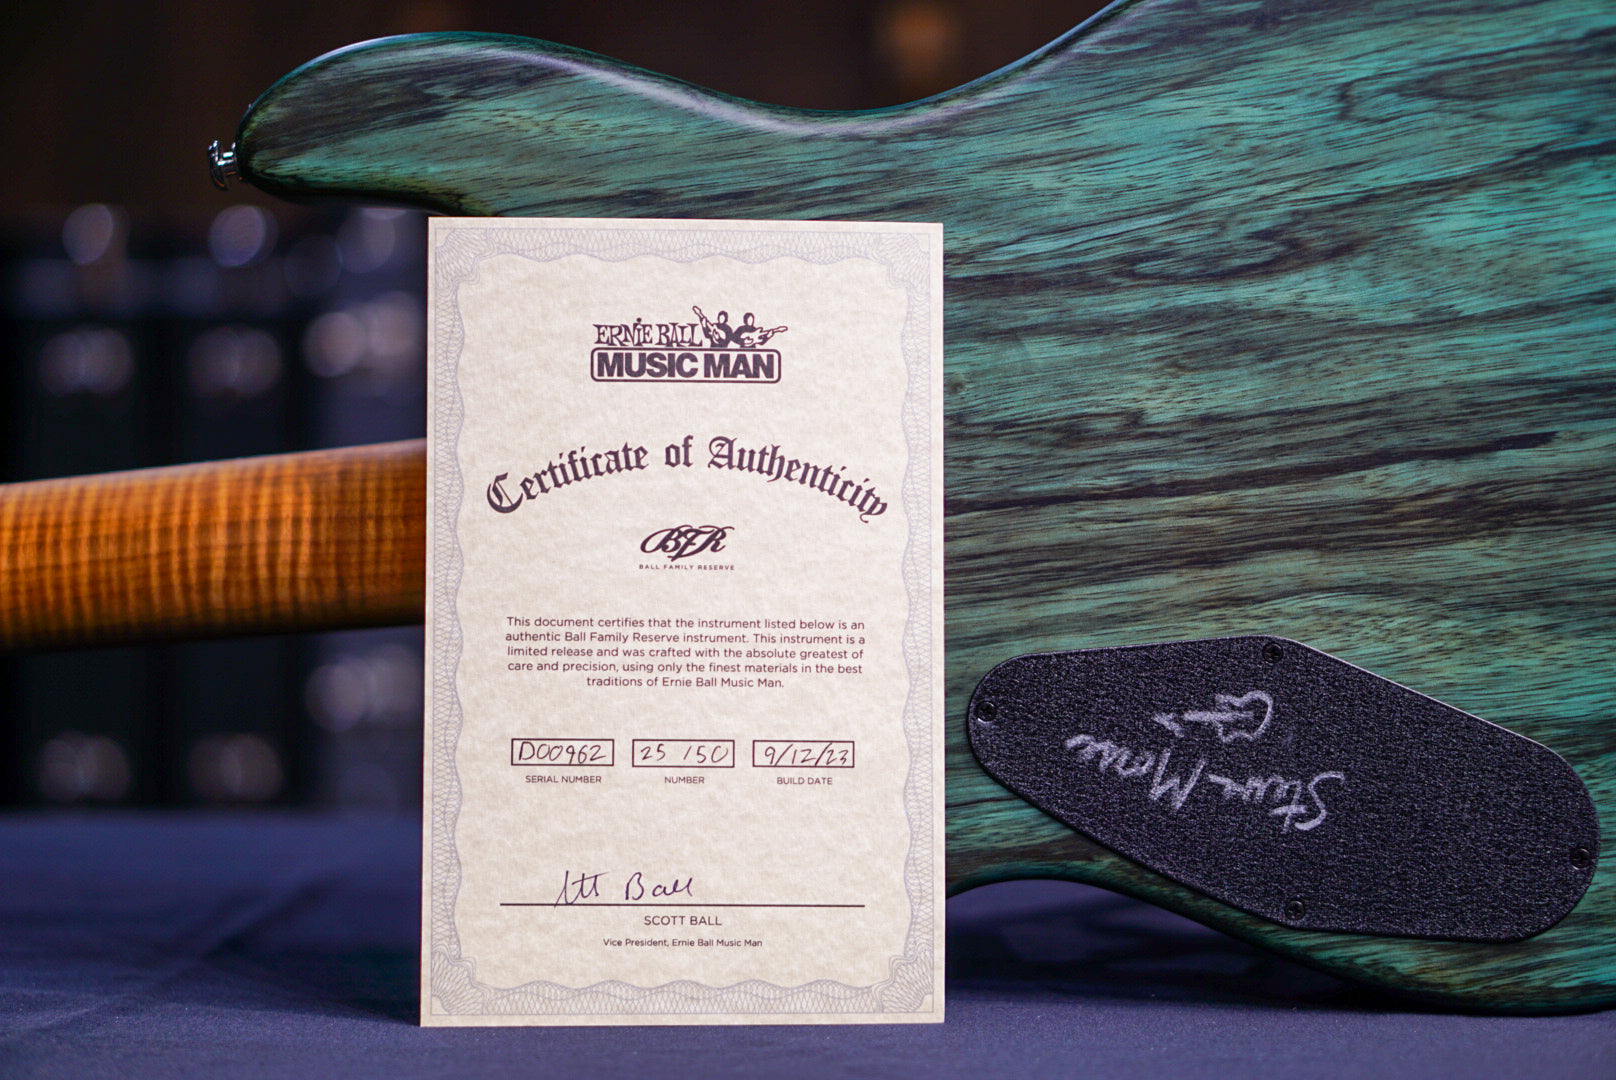 ERNIE BALL
MUSIC MAN
Certificate of Authenticity
BFR
BALL FAMILY RESERVE
This document certifies that the instrument listed below is an
authentic Ball Family Reserve instrument. This instrument is a
limited release and was crafted with the absolute greatest of
care and precision, using only the finest materials in the best
traditions of Ernie Ball Music Man.
D00962 25 /50 9/12/23
SERIAL NUMBER NUMBER BUILD DATE
Scott Ball
SCOTT BALL
Vice President, Ernie Ball Music Man
Steve Morse